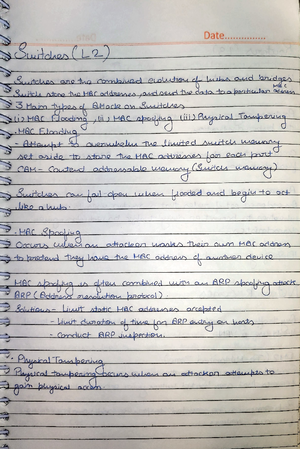 Date..............
Switches (L2)
Switches are the combined evolution of hubs and bridges
MAC
Switch store the MAC addresses and send the data to a particular address
3 Main types of Attacks on Switches
(i) MAC Flooding (ii) MAC spoofing (iii) Physical Tampering
- MAC Flooding
- Attempt to overwhelm the limited switch memory
set aside to store the MAC addresses for each port
CAM - Content addressable memory (Switch memory)
Switches can fail open when flooded and begin to act
like a hub.
- MAC Spoofing
Occurs when an attacker masks their own MAC address
to pretend they have the MAC address of another device
MAC spoofing is often combined with an ARP spoofing attack
ARP (Address resolution protocol)
Solutions - Limit static MAC addresses accepted
- Limit duration of time for ARP entry on hosts
- Conduct ARP inspection.
- Physical Tampering
Physical tampering occurs when an attacker attempts to
gain physical access